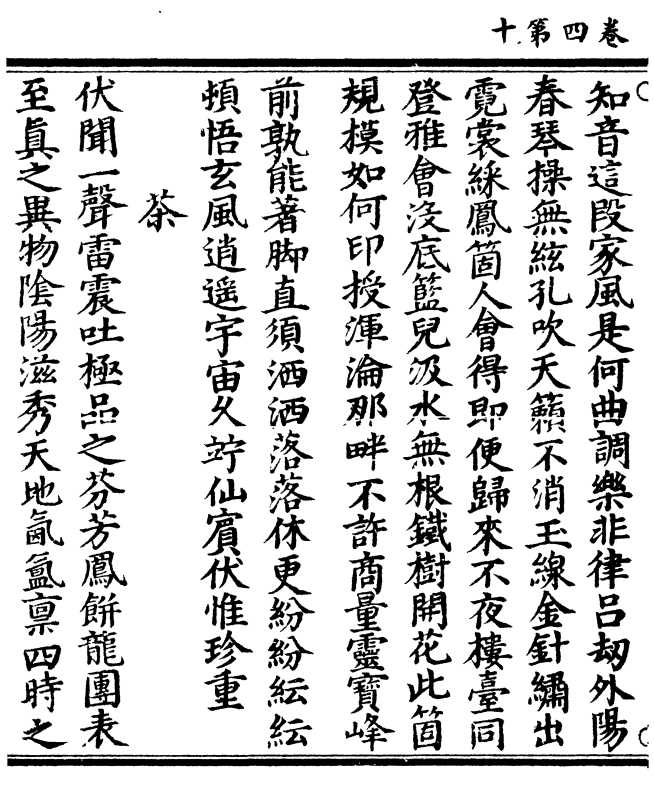 卷四第十
知音這段家風是何曲調樂非律呂刼外陽
春琴操無絃孔吹天籟不消玉線金針繡出
霓裳綵鳳箇人會得即便歸來不夜樓臺同
登雅會沒底籃兒汲水無根鐵樹開花此箇
規模如何印授渾淪那畔不許商量靈寶峰
前孰能著脚直須洒洒落落休更紛紛紜紜
頓悟玄風逍遥宇宙久竚仙賓伏惟珍重
茶
伏聞一聲雷震吐極品之芬芳鳳餅龍團表
至眞之異物陰陽滋秀天地氤氳禀四時之